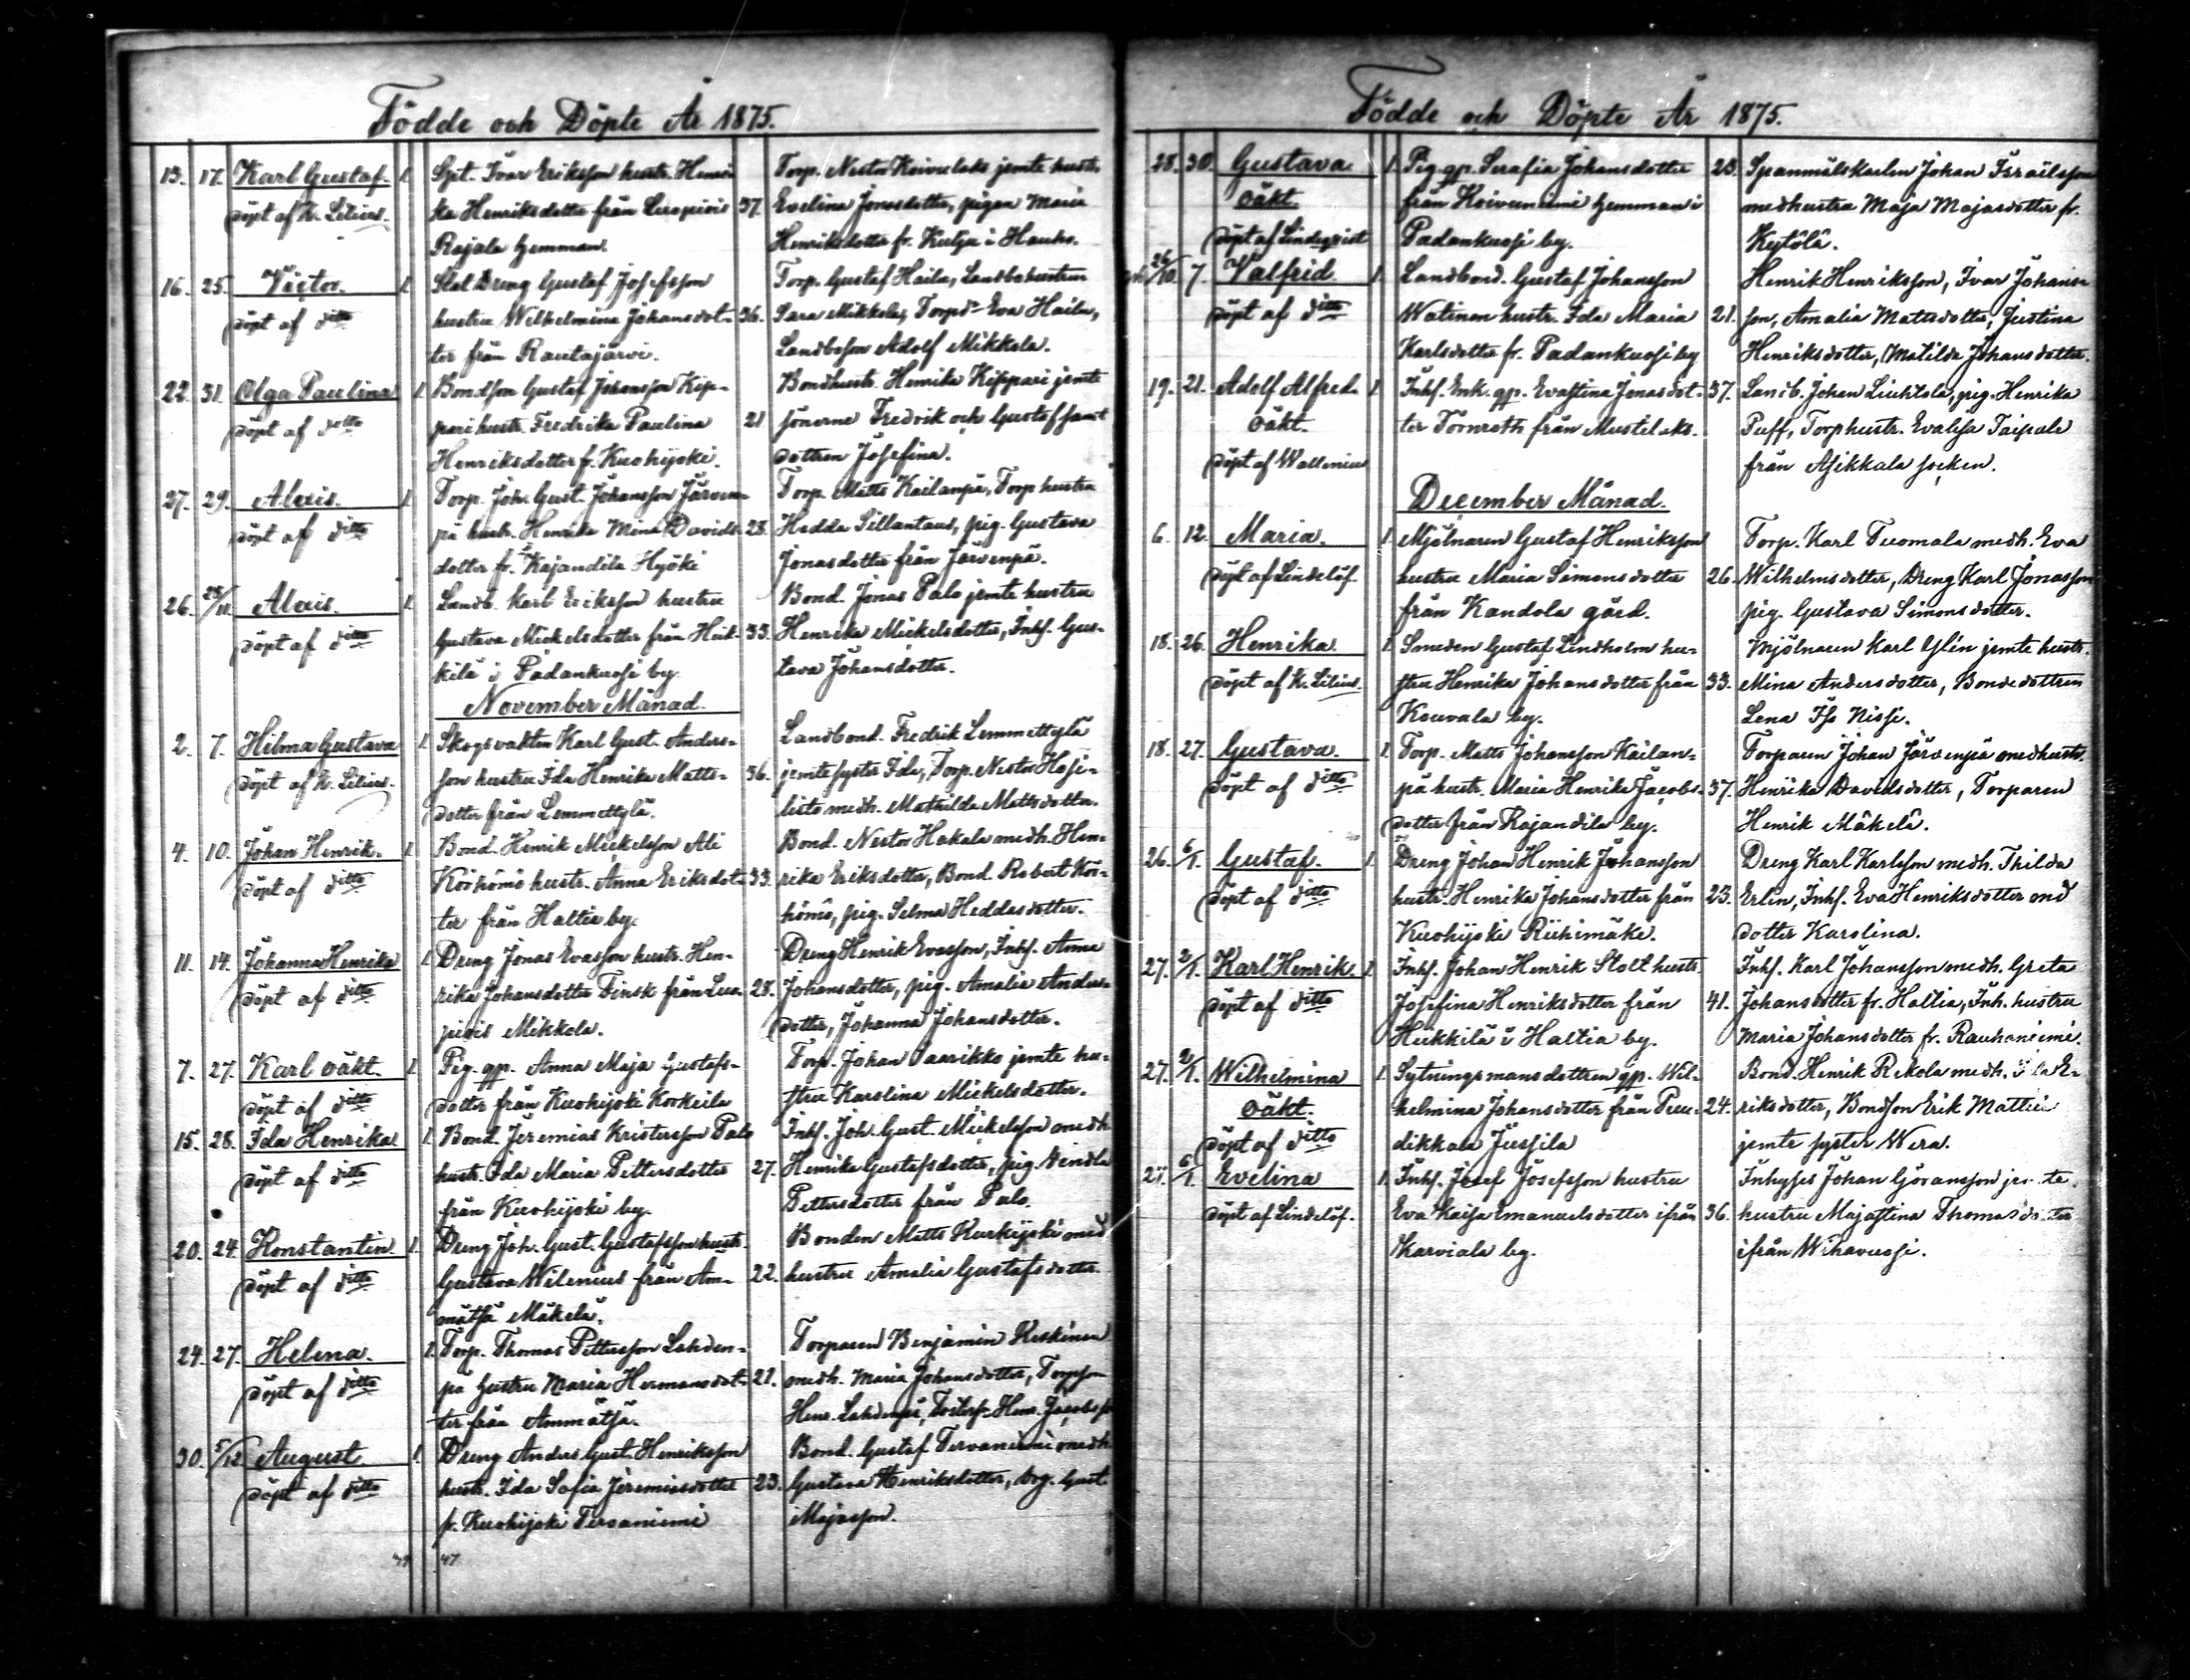 Födde och Döpte År 1875.
13. 17. Karl Gustaf. 1. Spt. Ivar Eriksson hustr. Henri- Torp. Nestor Koivulaks jemte hustr.
döpt af K. Lilius. ka Henriksdotter från Luopiois 37. Evelina Jonasdotter, pigan Maria
Rajala hemman. Henriksdotter fr. Kutja i Hauho.
16. 25. Victor. 1. Stal Dreng Gustaf Josefsson Torp. Gustaf Haila, Landbohustrun
döpt af ditto hustru Wilhelmina Johansdot- 36. Sara Mikkola, Torpdr Eva Haila,
ter från Rautajärvi. Landboson Adolf Mikkola.
22. 31. Olga Paulina 1. Bondson Gustaf Johansson Kip- Bondhustr. Henrika Kippari jemte
döpt af ditto pari hustr. Fredrika Paulina 21 sönerne Fredrik och Gustaf samt
Henriksdotter fr. Kuohijoki. dottren Josefina.
27. 29. Alexis. 1. Torp. Joh. Gust. Johansson Järven- Torp. Matts Kailanpä, Torphustru
döpt af ditto pä hustr. Henrika Mina Davids- 28. Hedda Sillantaus, pig. Gustava
dotter fr. Kajandila Hyöki Jonasdotter från Järvenpä.
26. 25/11 Alexis. 1. Landb. Karl Eriksson hustru Bond. Jonas Palo jemte hustru
döpt af ditto Gustava Mickelsdotter från Heik- 33. Henrika Mickelsdotter, Inhs. Gus-
kilä i Padankuosi by. tava Johansdotter.
November Månad.
2. 7. Hilma Gustava 1. Skogsvakten Karl Gust. Anders- Landbond. Fredrik Lemmettylä
döpt af K. Lilius. son hustru Ida Henrika Matts- 36. jemte syster Ida, Torp. Nestor Hosi-
dotter från Lemmettylä. listo medh. Mathilda Mattsdotter.
4. 10. Johan Henrik. 1. Bond. Henrik Mickelsson Ali Bond. Nestor Hakala medh. Hen-
döpt af ditto Köihömö hustr. Anna Eriksdot- 33. rika Eriksdotter, Bond. Robert Köi-
ter från Haltia by. hömö, pig. Selma Heddasdotter.
11. 14. Johanna Henrika 1. Dreng Jonas Evasson hustr. Hen- Dreng Henrik Evasson, Inhs. Anna
döpt af ditto rika Johansdotter Finsk från Luo- 28. Johansdotter, pig. Amalia Anders-
piois Mikkola. dotter, Johanna Johansdotter.
7. 27. Karl oäkt. 1. Pig. gp. Anna Maja Gustafs- Torp. Johan Saarikko jemte hu-
döpt af ditto dotter från Kuohijoki Korkeila stru Karolina Mickelsdotter.
15. 28. Ida Henrika 1. Bond. Jeremias Kristersson Palo Inhs. Joh. Gust. Mickelsson medh
döpt af ditto hustr. Ida Maria Pettersdotter 27. Henrika Gustafsdotter, pig. Vendla
från Kuohijoki by. Pettersdotter från Palo.
20. 24. Konstantin 1. Dreng Joh. Gust. Gustafsson hustr. Bonden Matts Kurkijoki med
döpt af ditto Gustava Wilenius från Am- 22. hustru Amalia Gustafsdotter
mätsä Mäkelä.
24. 27. Helena. 1. Torp. Thomas Pettersson Lahden- Torparen Benjamin Keskinen
döpt af ditto pä hustru Maria Hermansdot- 21. medh. Maria Johansdotter, Torpson
ter från Ammätsä. Henr. Lahdenpä,
30. 5/12 August. 1. Dreng Anders Gust. Henriksson Bond. Gustaf Tervaniemi medh
döpt af ditto hustr. Ida Sofia Jeremiasdotter 23. Gustava Henriksdotter, drg. Gust.
fr. Kuohijoki Tervaniemi Majasson.
47
Födde och Döpte År 1875.
28. 30. Gustava 1. Pig. gp. Serafia Johansdotter 23. Spanmålskarlen Johan Israelsson
oäkt. från Koivuniemi hemman i medhustru Maja Majasdotter fr.
döpt af Lindeqvist Padankuosi by. Kytölä.
26/10. 7. Valfrid 1. Landbond. Gustaf Johansson Henrik Henriksson, Ivar Johans-
döpt af ditto Watinen hustr. Ida Maria 21. son, Amalia Mattsdotter, Justina
Karlsdotter fr. Padankuosi by Henriksdotter, Matilda Johansdotter.
19. 21. Adolf Alfred. 1. Inhs. Enk. gp. Evastina Jonasdot- 37. Landb. Johan Liuhtola, pig. Henrika
oäkt. ter Tornroth från Mustilaks. Puff, Torphustr. Evalisa Taipale
döpt af Wallenius från Asikkala socken.
December Månad.
6. 12. Maria. 1. Mjölnaren Gustaf Henriksson Torp. Karl Tuomala medh. Eva
döpt af Lindelöf. hustru Maria Simonsdotter 26. Wilhelmsdotter, Dreng Karl Jonasson
från Kandola gård. pig. Gustava Simonsdotter.
18. 26. Henrika 1. Smeden Gustaf Lindholm hu- Mjölnaren Karl Glén jemte hustr.
döpt af K. Lilius. stru Henrika Johansdotter från 33. Mina Andersdotter, Bondedottren
Kouvala by. Lena Iso Nissi.
18. 27. Gustava. 1. Torp. Matts Johansson Kailan- Torparen Johan Järvenpä medhustr.
döpt af ditto pä hustr. Maria Henrika Jacobs- 37. Henrika Davidsdotter, Torparen
dotter från Kajandila by. Henrik Mäkelä.
26. 6/1. Gustaf. 1. Dreng Johan Henrik Johansson Dreng Karl Karlsson medh. Thilda
döpt af ditto hustr. Henrika Johansdotter från 23. Erlin, Inhs. Eva Henriksdotter med
Kuohijoki Riihimäki. dotter Karolina.
27. 2/1. Karl Henrik 1. Inhs. Johan Henrik Stolt hustr. Inhs. Karl Johansson medh. Greta
döpt af ditto Josefina Henriksdotter från 41. Johansdotter fr. Haltia, Inh. hustru
Heikkilä i Haltia by. Maria Johansdotter fr. Rauhaniemi.
27. 2/1. Wilhelmina 1. Sytningsmansdottren gp. Wil- Bond. Henrik Rekola medh. E-
oäkt. helmina Johansdotter från Puu- 24. riksdotter, Bondson Erik Mattila
döpt af ditto dikkala Jussila jemte syster Wera.
27. 6/1. Evelina 1. Inhs. Josef Josefsson hustru Inhyses Johan Göransson jemte
döpt af Lindelöf. Eva Kaisa Emanuelsdotter ifrån 36. hustru Majastina Thomasdotter
Karviala by. ifrån Wihavuosi.